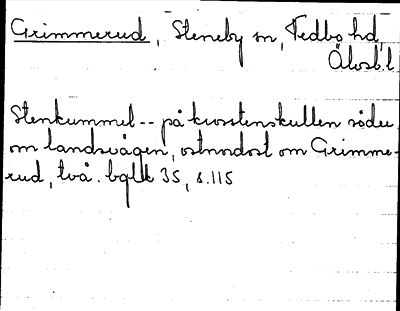 Grimmerud, Steneby sn, Vedbo hd,
Älvsb.l
Stenkummel -- på kvartenskullen söder
om landsvägen, ostnordost om Grimme-
rud, två. 35, s.115